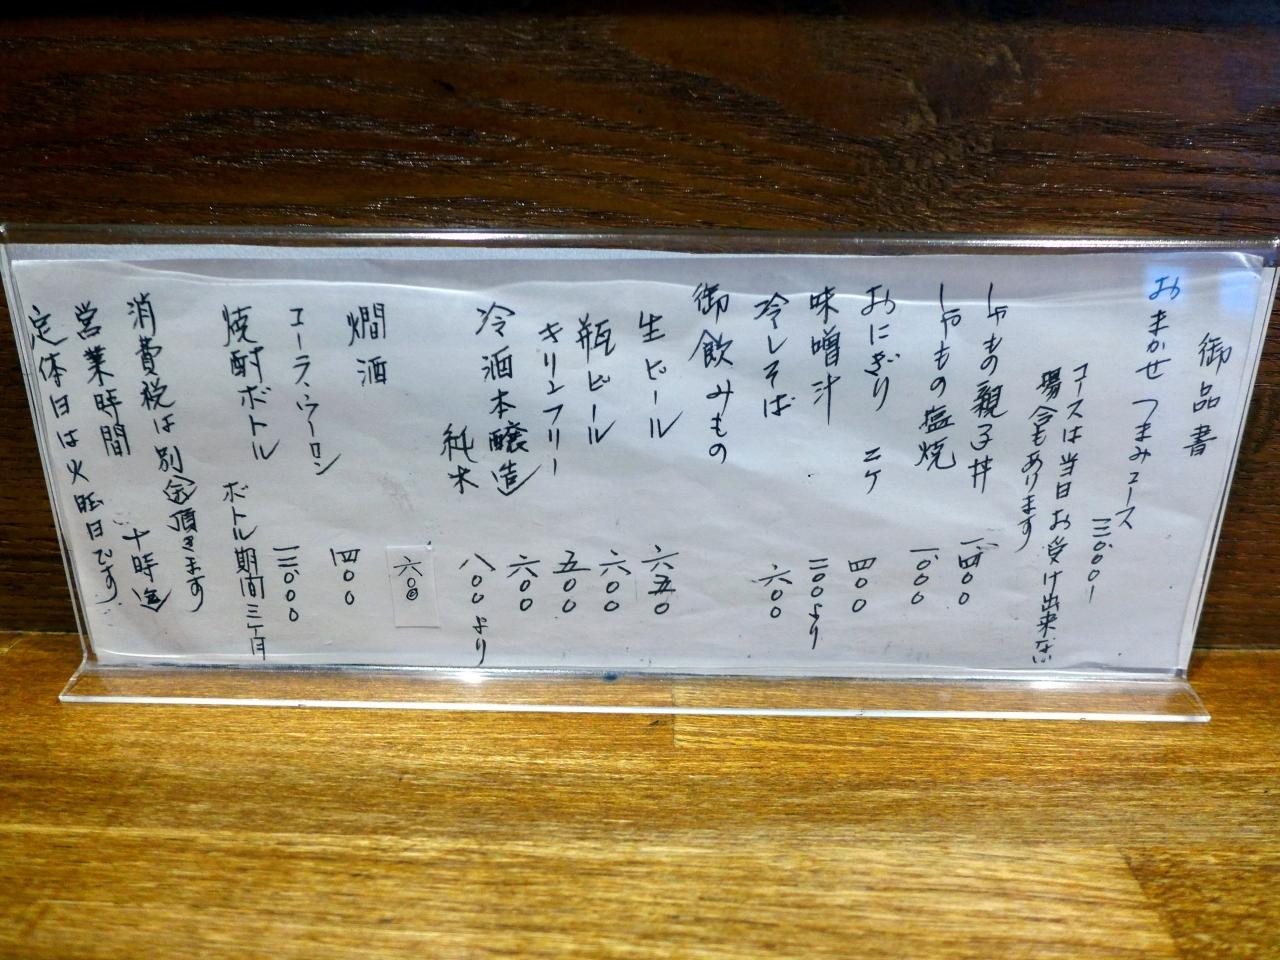 御品書
おまかせ つまみコース 三〇〇〇ー
コースは当日お受け出来ない
場合もあります
しゃもの親子丼 一、四〇〇
しゃもの塩焼 一、〇〇〇
おにぎり 二ケ 四〇〇
味噌汁 二〇〇より
冷しそば 六〇〇
御飲みもの
生ビール 六五〇
瓶ビール 六〇〇
キリンフリー 五〇〇
冷酒本醸造 六〇〇
純米 八〇〇より
燗酒 六〇〇
コーラ、ウーロン 四〇〇
焼酎ボトル 三〇〇〇
ボトル期間三ケ月
消費税は別金頂きます
営業時間 十時迄
定休日は火曜日です